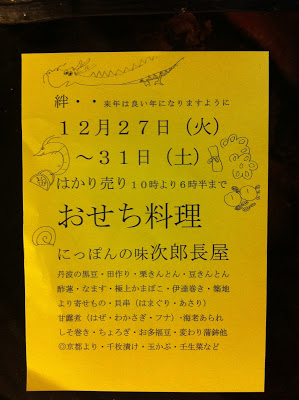 絆・・来年は良い年になりますように
12月27日（火）
～31日（土）
はかり売り10時より6時半まで
おせち料理
にっぽんの味次郎長屋
丹波の黒豆・田作り・栗きんとん・豆きんとん
酢蓮・なます・極上かまぼこ・伊達巻き・築地
より寄せもの・貝串（はまぐり・あさり）
甘露煮（はぜ・わかさぎ・フナ）・海老あられ
しそ巻き・ちょろぎ・お多福豆・変わり蒲鉾他
◎京都より・千枚漬け・玉かぶ・壬生菜など